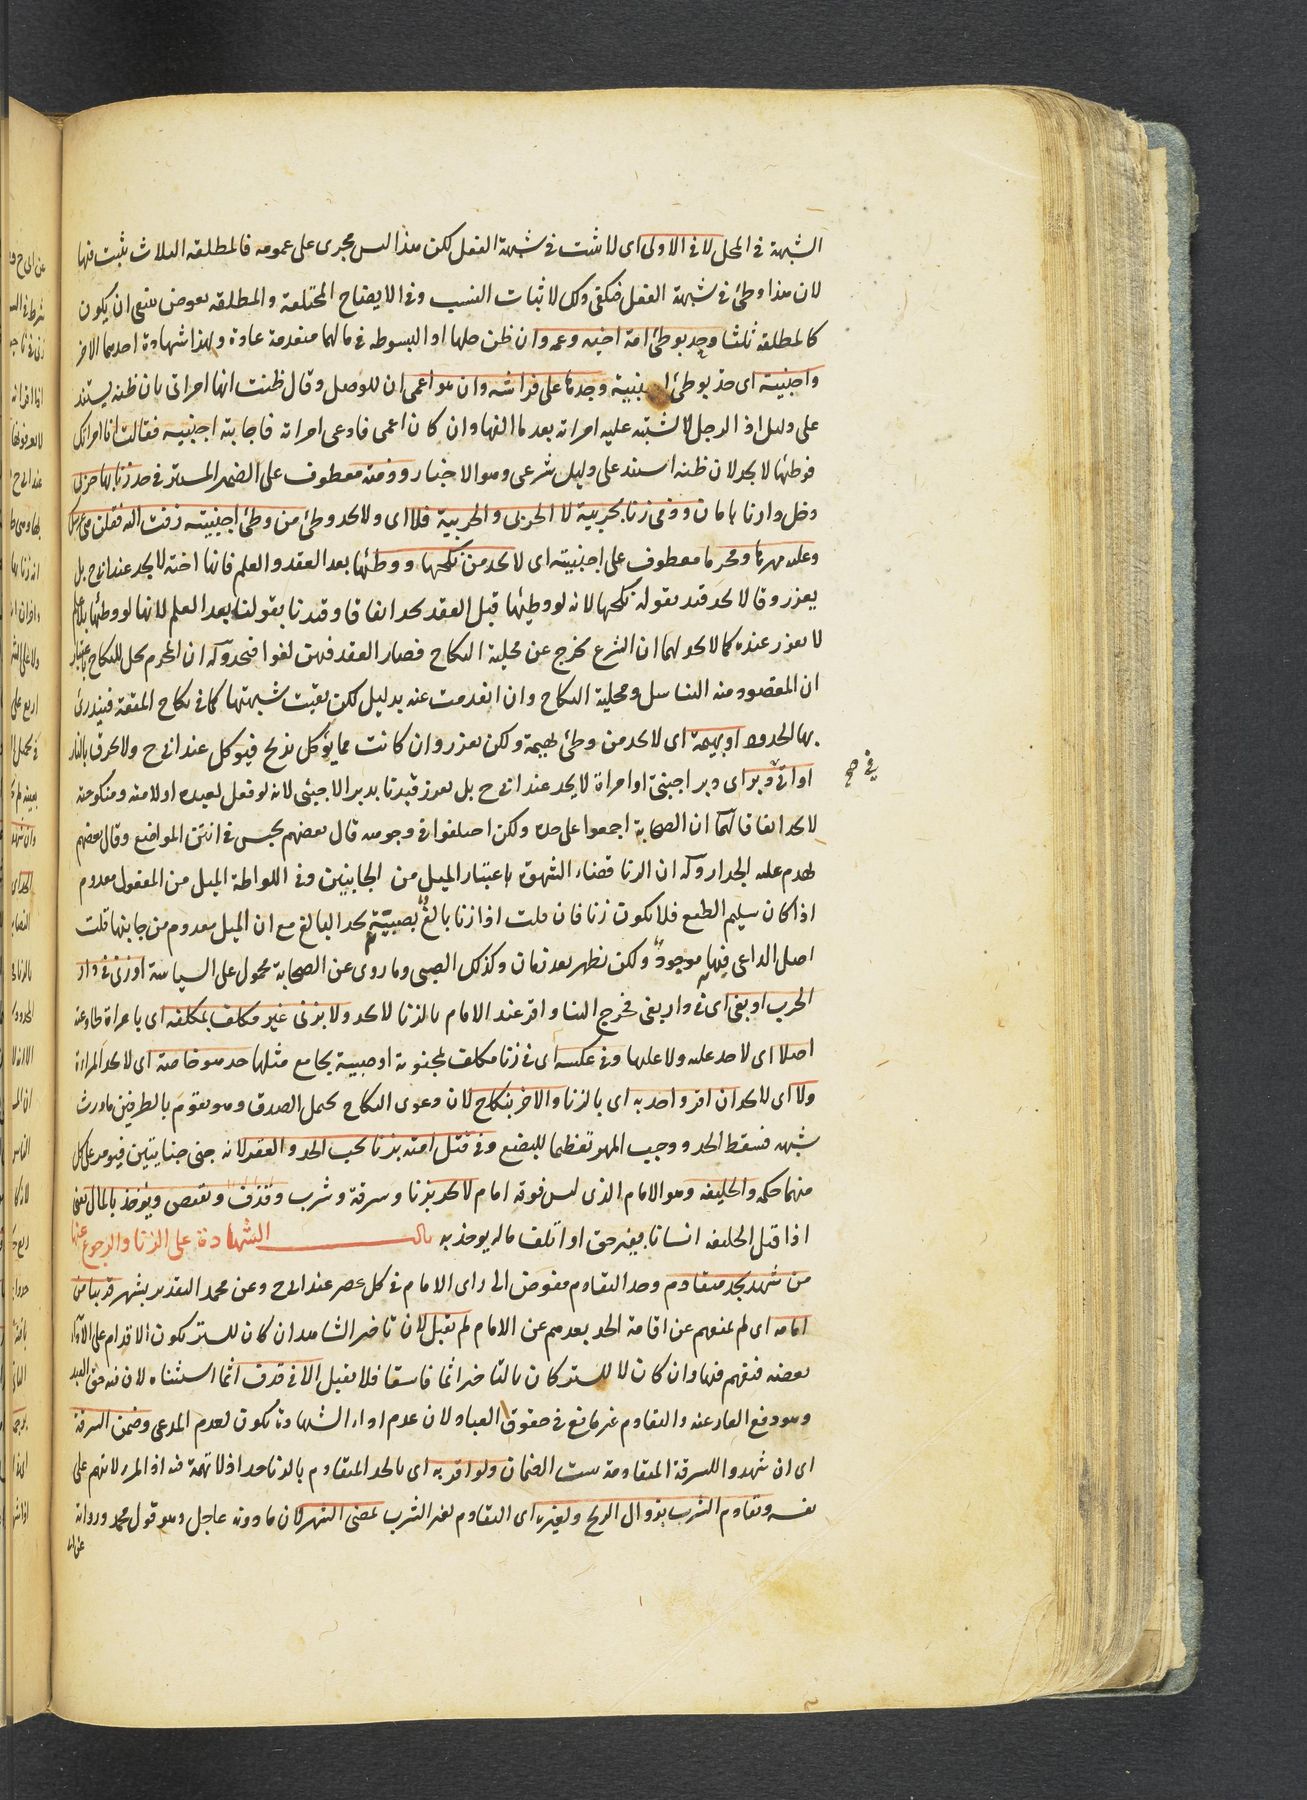 الشبهة في المحل لا في الاولى اى لا تثبت في شبهة الفعل لكن هذا ليس مجرى على عمومه فالمطلقة الثلاث يثبت فيها
لان هذا وطئ في شبهة الفعل فيكفى ذلك لاثبات النسب وفى الايضاح المختلعة والمطلقة بعوض ينبغى ان يكون
كالمطلقة ثلثا وحد بوطئ امة اخيه وعمه وان ظن حلها اذ لا بسوطة في مالهما متعدمة عادة ولهذا شهادة احدهما الاخر
واجنبية اى حد بوطئ اجنبية وجدها على فراشه وان هو اعمى ان للوصل وقال ظننت انها امراتى بان ظنه يستند
على دليل اذ الرجل لا تشتبه عليه امراته بعد ما الفها وان كان اعمى فادعى امراته فاجابته اجنبيه فقالت انا امراتك
فوطئها لا يحد لان ظنه استند على دليل شرعى وهو الاخبار وذمية معطوف على الضمير المستتر في حد زنا بها حربى
دخل دارنا بامان وذمى زنا بحربية لا الحربى والحربية فلا اى ولا يحد وطئ من وطئ اجنبية زفت اليه فقلن هى عرسك
وعليه مهرها ومحرما معطوف على اجنبية اى لا يحد من نكحها ووطئها بعد العقد والعلم فانها اخته لا يحد عند ابى ح بل
يعزر وقالا يحد قيد بقوله نكحها لانه لو وطئها قبل العقد يحد اتفاقا وقيدنا بقولنا بعد العلم لانها لو وطئها بلا علم
لا يعزر عنده كما لا يحد لهما ان الشرع يخرج عن محلية النكاح فصار العقد فيهن لغوا فيحد وله ان المحرم محل للنكاح باعتبار
ان المقصود منه التناسل ومحلية النكاح وان انعدمت عنه بدليل لكن بقيت شبهتها كما في نكاح المتعة فيندرئ
بها الحدود او بهيمة اى لا يحد من وطئ بهيمة ولكن يعزر وان كانت مما يؤكل تذبح فيوكل عند ابى ح ولا تحرق بالنار
او اتى دبر اى دبر اجنبى او امراة لا يحد عند ابى ح بل يعزر قيدنا بدبر الاجنبى لانه لو فعل لعبده او لامته ومنكوحته
في صح
لا يحد اتفاقا لهما ان الصحابة اجمعوا على حده ولكن اختلفوا في وجوهه قال بعضهم يحبس في انتن المواضع وقال بعضهم
يهدم عليه الجدار وله ان الزنا قضاء الشهوة باعتبار الميل من الجانبين وفى اللواطة الميل من المفعول معدوم
اذا كان سليم الطبع فلا يكون زنا فان قلت اذا زنا بالغ بصبية يحد البالغ مع ان الميل معدوم من جانبها قلت
اصل الداعى فيها موجود ولكن يظهر بعد زمان وكذلك الصبى وما روى عن الصحابة محمول على السياسة او زنى في دار
الحرب او بغى اى في دار بغى فخرج الينا واقر عند الامام بالزنا لا يحد ولا بزنى غير مكلف بمكلفة اى بامراة طاوعته
اصلا اى لا حد عليه ولا عليها وفى عكسه اى في زنا مكلف لمجنونة او صبيية يجامع مثلها حد هو خاصة اى لا يحد المراة
ولا اى لا يحد ان اقر واحد به اى بالزنا والاخر بنكاح لان دعوى النكاح يحتمل الصدق وهو يقوم بالطرفين فاورث
شبهة فسقط الحد ووجب المهر تعظيما للبضع وفى قتل امته بزنا يجب الحد والقيمة لانه جنى جنايتين فيوفر على كل
منهما حكمه والخليفة وهو الامام الذى ليس فوقه امام لا يحد بزنا وسرقة وشرب وقذف ويقتص ويؤخذ بالمال يعنى
اذا قتل الخليفة انسانا بغير حق او اتلف ماله يوخذ به باب الشهادة على الزنا والرجوع عنها
من شهد بحد متقادم وحد التقادم مفوض الى راى الامام في كل عصر عند ابى ح وعن محمد التقدير بشهر قريبا من
امامه اى لم يمنعهم عن اقامة الحد بعدهم عن الامام لم تقبل لان تاخير الشاهد ان كان للستر يكون الاقدام على الاداء
بعضه فيتهم فيها وان كان لا للستر كان بالتاخير اثما فاسقا فلا تقبل الا في قذف انما استثناه لان فيه حق العبد
وهو دفع العار عنه والتقادم غير مانع في حقوق العباد لان عدم اداء الشهادة يكون لعدم المدعى وضمن السرقة
اى ان شهدوا للسرقة المتقادمة يثبت الضمان ولو اقر به اى بالحد المتقادم بالزنا حد اذ لا تهمة فيه اذ المرء لا يتهم على
نفسه وتقادم الشرب بزوال الريح ولغيره اى التقادم لغير الشرب بمضى الشهر لان ما دونه عاجل وهو قول محمد ورواية
عن ابى